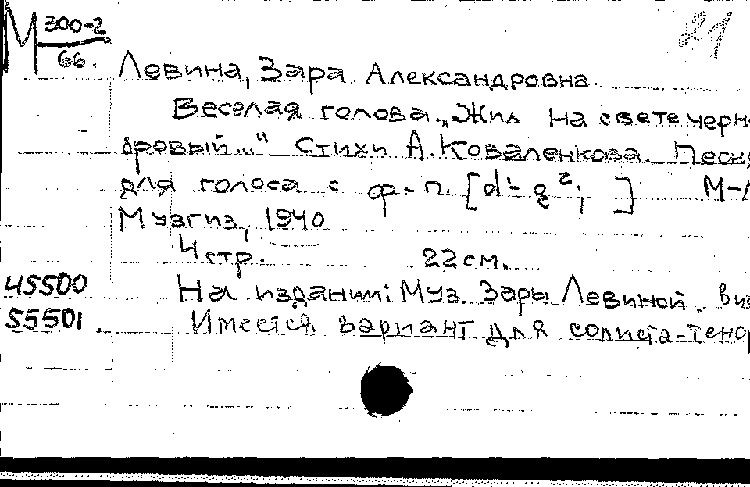 М 300-2
66.
21
Левина, Зара Александровна.
Веселая голова. „Жил на свете черно
бровый..." Стихи А. Коваленкова. Песня
для голоса с ф-п. [d¹-g²; ] М-
Музгиз, 1940
4 стр. 22 см.
45500 На издании: Муз. Зары Левиной.
55501. Имеется вариант для солиста-тенор